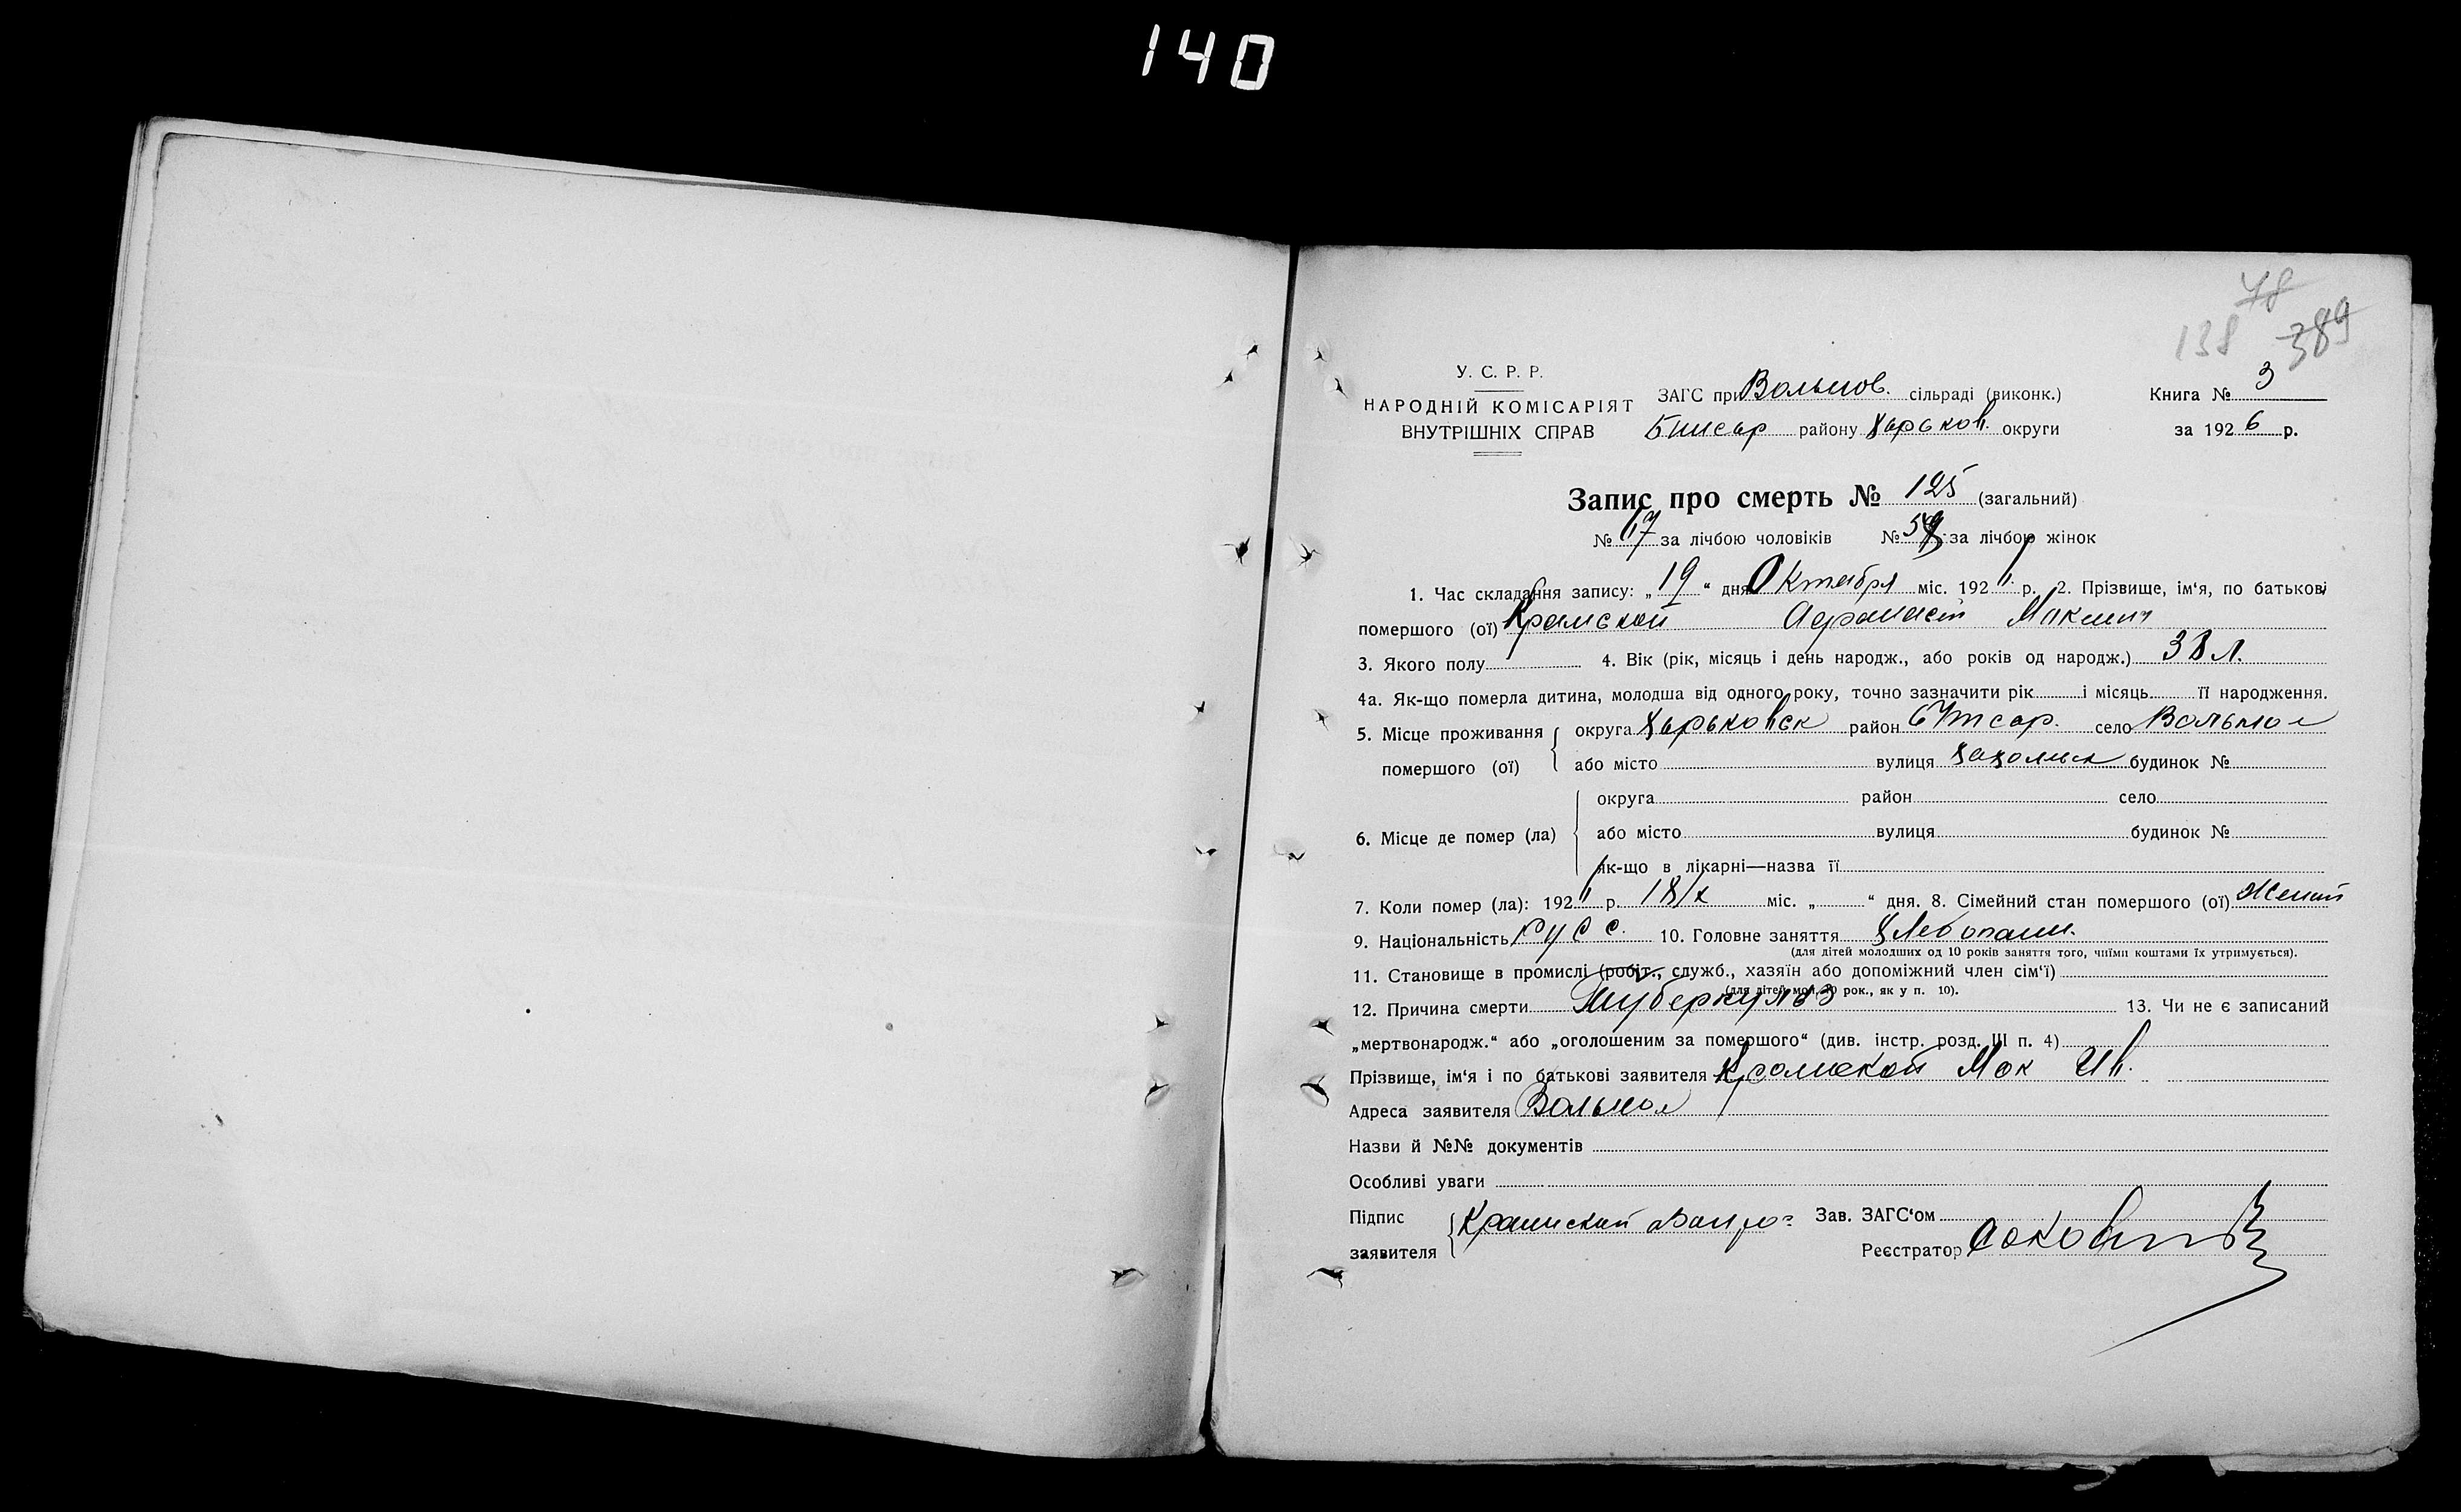 140
48
138 389
У. С. Р. Р.
НАРОДНІЙ КОМІСАРІЯТ
ВНУТРІШНІХ СПРАВ
ЗАГС при Вольнов. сільраді (виконк.)
району Харьков. округи
Книга № 3
за 1926 р.
Запис про смерть № 125 (загальний)
№ 67 за лічбою чоловіків № за лічбою жінок
1. Час складання запису: „ 19 “ дня Октября міс. 192 р. 2. Прізвище, ім‘я, по батькові
помершого (ої) Крамской Афанасий Максим
3. Якого полу 4. Вік (рік, місяць і день народж., або років од народж.) 38 л.
4а. Як-що померла дитина, молодша від одного року, точно зазначити рік і місяць її народження.
5. Місце проживання помершого (ої) округа Харьковск район село Вольное
або місто вулиця будинок №
6. Місце де помер (ла) округа район село
або місто вулиця будинок №
як-що в лікарні—назва її
7. Коли помер (ла): 192 р. 18/X міс. „ “ дня. 8. Сімейний стан помершого (ої) Женат
9. Національність Русс. 10. Головне заняття Хлебопаш.
(для дітей молодших од 10 років заняття того, чиїми коштами їх утримується).
11. Становище в промислі (робіт., служб., хазяїн або допоміжний член сім‘ї)
(для дітей мол. 10 рок., як у п. 10).
12. Причина смерти Туберкулез 13. Чи не є записаний
„мертвонародж.“ або „оголошеним за помершого“ (див. інстр. розд. III п. 4)
Прізвище, ім‘я і по батькові заявителя Крамской Мак Ив.
Адреса заявителя Вольное
Назви й №№ документів
Особливі уваги
Підпис заявителя Крамской Зав. ЗАГС‘ом
Реєстратор